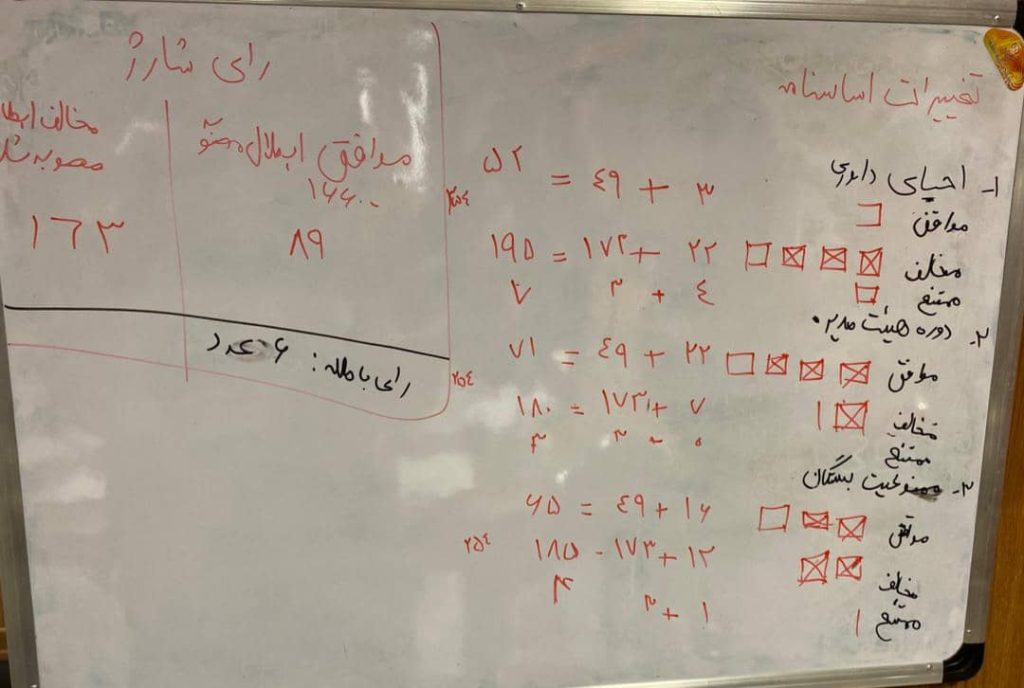 تغییرات اساسنامه
۱- احیای داوری
موافق ۳ + ۴۹ = ۵۲
۲۵۴
مخالف ۲۲ + ۱۷۳ = ۱۹۵
ممتنع ۴ + ۳ ۷
۲- دوره هیئت مدیره
موافق ۲۲ + ۴۹ = ۷۱
۲۵۴
مخالف ۷ + ۱۷۳ = ۱۸۰
ممتنع ۰ ۳ ۳
۳- ممنوعیت بستگان
موافق ۱۶ + ۴۹ = ۶۵
مخالف ۱۲ + ۱۷۳ - ۱۸۵
۲۵۴
ممتنع ۱ + ۳ ۴
رای شارژ
موافق ابطال مصوبه
۱۶۶۰۰
۸۹
مخالف ابطا
مصوبه شا
۱۶۳
رای باطله: ۶ عدد